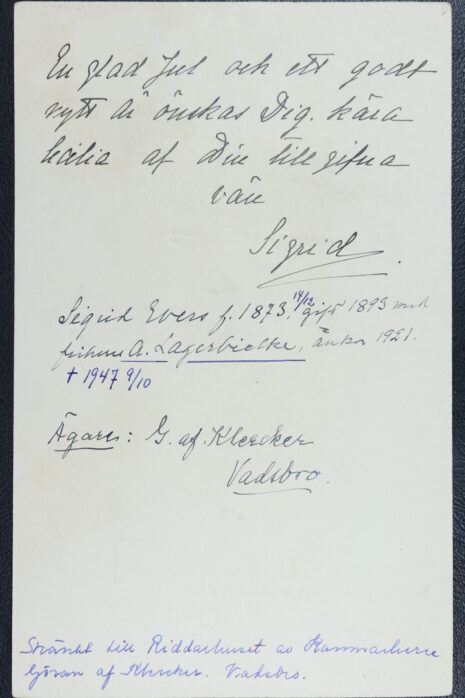 En glad Jul och ett godt
nytt år önskas Dig, kära
Cecilia af Din tillgifna
vän
Sigrid
Sigrid Evers f. 1873 14/12, gift 1893 med
friherre A. Lagerbielke, änka 1921.
† 1947 9/10
Ägare: G. af Klercker
Vadsbro.
Skänkt till Riddarhuset av Kammarherre
Göran af Klercker. Vadsbro.